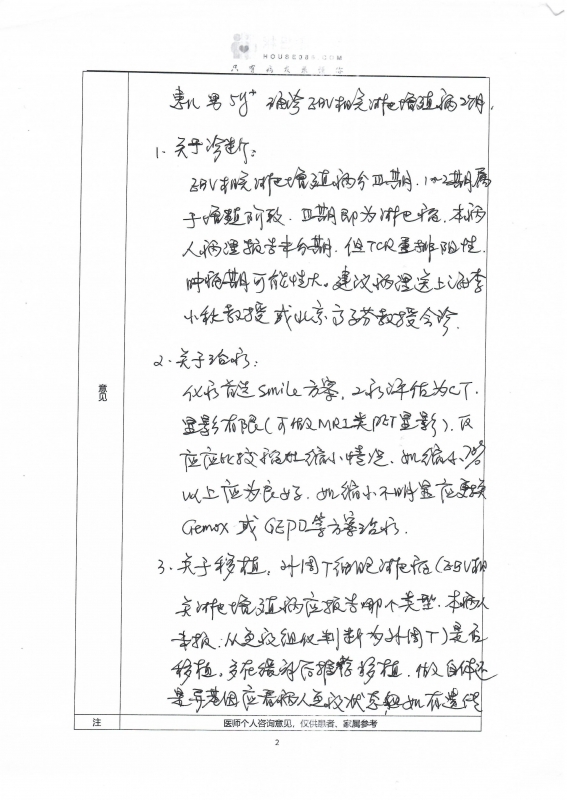 HOUSE086.COM
患儿男5y+ 确诊EBV相关淋巴增殖病2月,
1. 关于诊断:
EBV相关淋巴增殖病分Ⅲ期. 1~2期属
于增殖阶段. Ⅲ期即为淋巴瘤. 本病
人病理报告未分期. 但TCR重排阳性.
肿瘤期可能性大。建议病理送上海李
小秋教授或北京高子芬教授会诊.
2. 关于治疗:
化疗首选Smile方案, 2疗评估为CT.
显影有限(可做MRI类PET显影), 反
应应比较病灶缩小情况. 如缩小70%
以上应为良好. 如缩小不明显应更换
Gemox或GEPD等方案治疗.
3. 关于移植, 外周T细胞淋巴瘤(EBV相
关淋巴增殖病应报告哪个类型. 本病人
未报. 从免疫组化判断为外周T)是否
移植, 多在缓解后推荐移植. 做自体还
是异基因应看病人免疫状态如有遗传
意见
注 医师个人咨询意见,仅供患者、家属参考
2